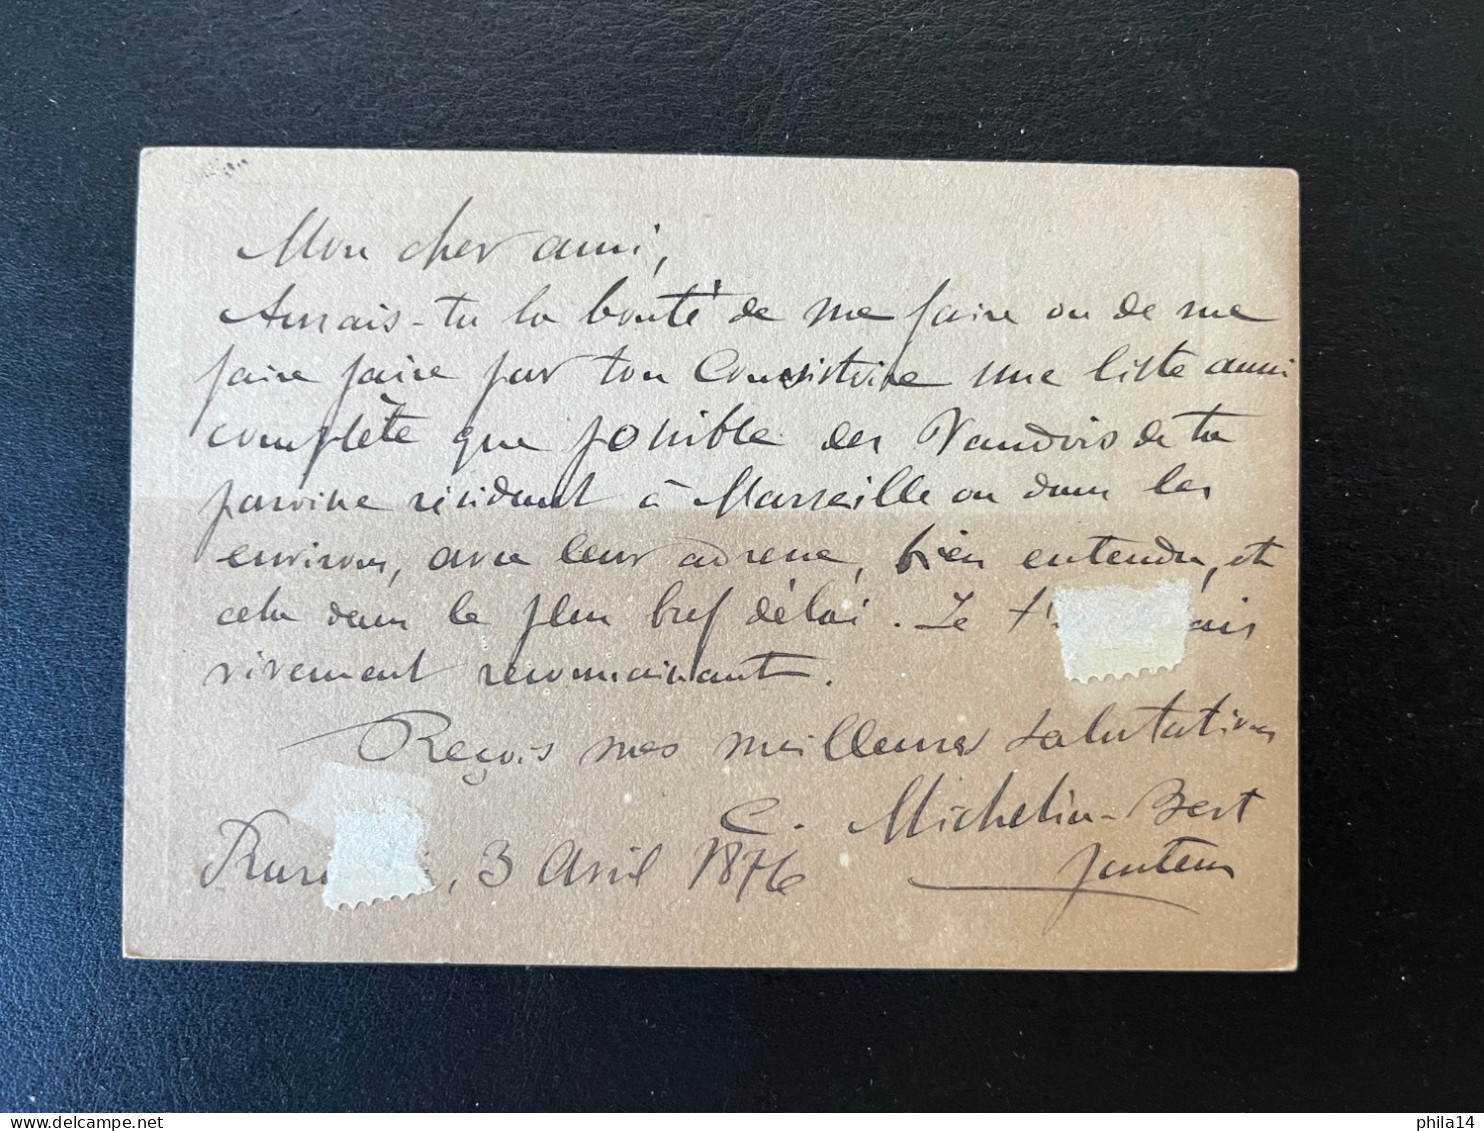 Mon cher ami,
Aurais-tu la bonté de me faire ou de me
faire faire par ton Consistoire une liste aussi
complête que possible des Vaudois de ta
paroisse résidant à Marseille ou dans les
environs, avec leur adresse, bien entendu, et
cela dans le plus bref délai. Je t'
vivement reconnaissante.
Reçois mes meilleures salutations
C. Michelin-Bert
pasteur
3 Avril 1876
phila14